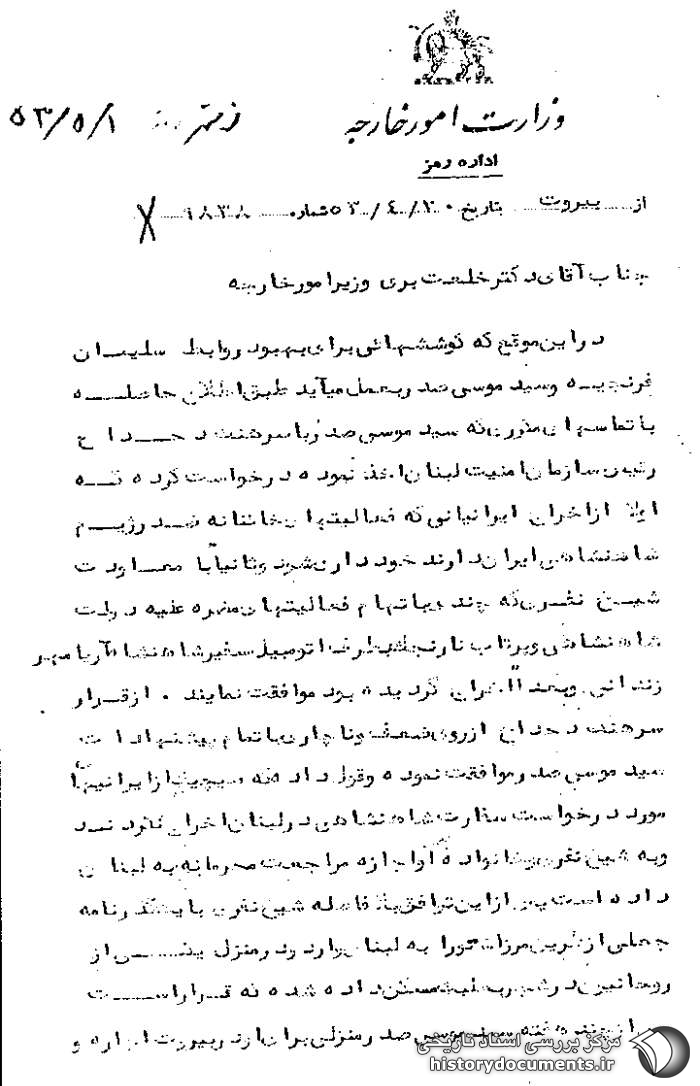 وزارت امور خارجه
۵۳/۵/۱
اداره رمز
از بیروت بتاریخ ۵۳/۴/۲۰ شماره ۱۸۳۸
جناب آقای دکتر خلعت بری وزیر امور خارجه
در این موقع که کوششهائی برای بهبود روابط سلیمان
فرنجیه و سید موسی صدر بعمل میآید طبق اطلاع حاصله
با تماسهای مکرری که سید موسی صدر با سرهنگ دحداح
رئیس سازمان امنیت لبنان اخذ نموده درخواست کرده که
اولا از اخراج ایرانیانی که فعالیتهای خائنانه ضد رژیم
شاهنشاهی ایران دارند خودداری شود و ثانیاً با معاودت
شیخ نفری که چندی باتهام فعالیتهای مضره علیه دولت
شاهنشاهی و پرتاب نارنجک بطرف اتومبیل سفیر شاهنشاه آریامهر
زندانی و بعداً اخراج گردیده بود موافقت نمایند . از قرار
سرهنگ دحداح از روی ضعف و ناچاری با تمام پیشنهادات
سید موسی صدر موافقت نموده و قول داده که هیچیک از ایرانیهای
مورد درخواست سفارت شاهنشاهی در لبنان اخراج نگردند
و به شیخ نفری و خانواده او اجازه مراجعت محرمانه به لبنان
داده است پس از این توافق بلافاصله شیخ نفری با یک گذرنامه
جعلی از طریق مرز ناقورا به لبنان وارد و در منزل یکی از
روحانیون در شهر بعلبک مسکن داده شده که قرار است
از چند هفته سید موسی صدر منزلی برای او در بیروت اجاره و
مرکز بررسی اسناد تاریخی
historydocuments.ir